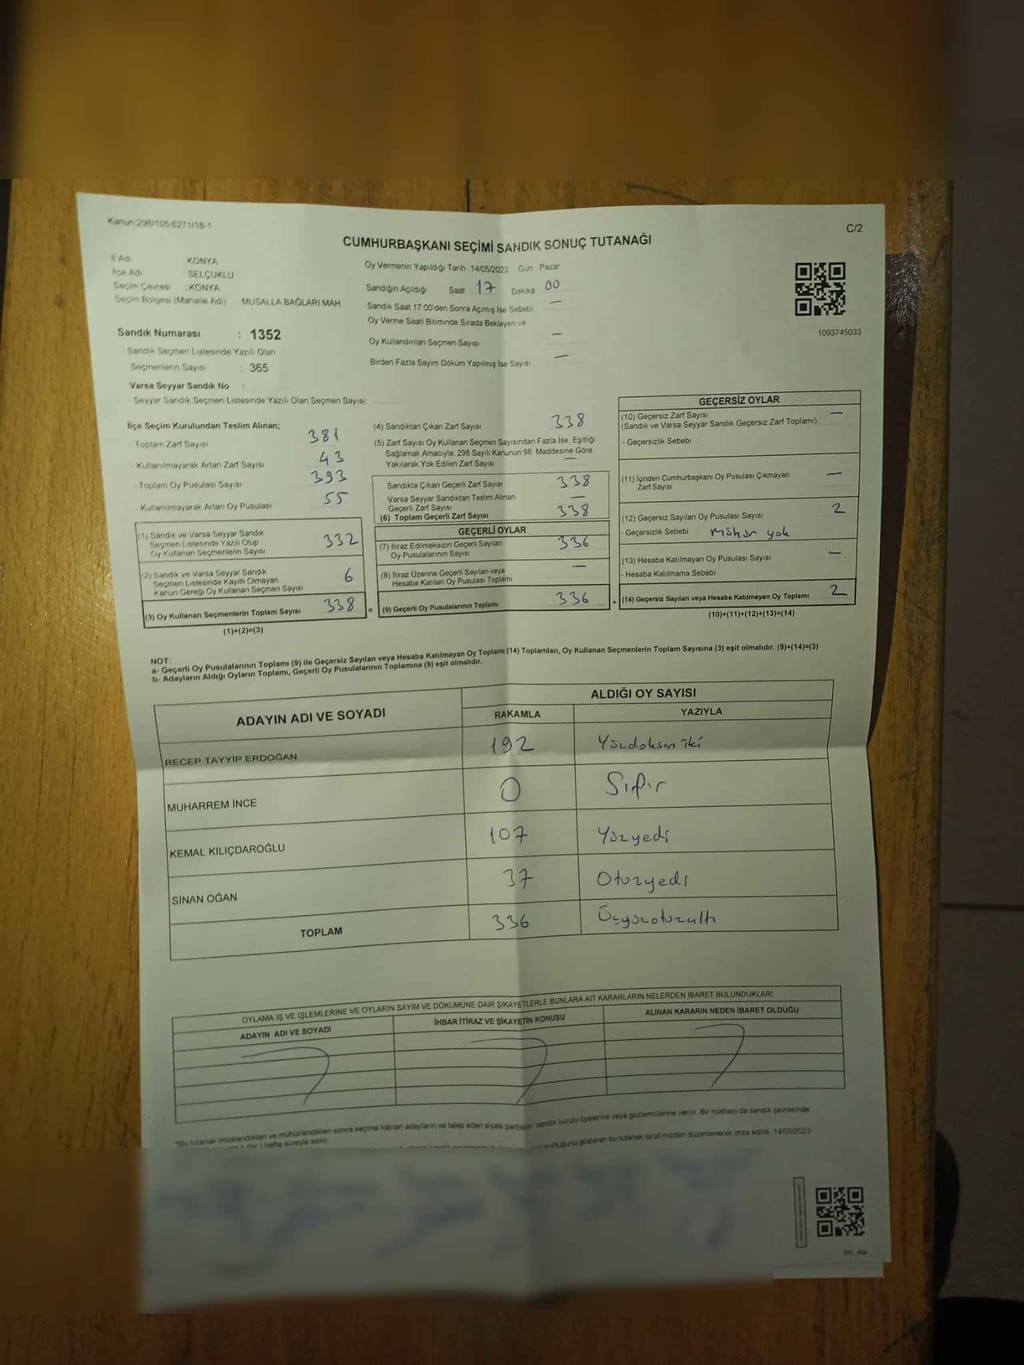 Kanun:298/105-6271/18-1
C/2
CUMHURBAŞKANI SEÇİMİ SANDIK SONUÇ TUTANAĞI
İl Adı KONYA
İlçe Adı SELÇUKLU
Seçim Çevresi : KONYA
Seçim Bölgesi (Mahalle Adı) MUSALLA BAĞLARI MAH
Sandık Numarası : 1352
- Sandık Seçmen Listesinde Yazılı Olan
Seçmenlerin Sayısı : 365
Varsa Seyyar Sandık No :
- Seyyar Sandık Seçmen Listesinde Yazılı Olan Seçmen Sayısı:
Oy Vermenin Yapıldığı Tarih :14/05/2023 Gün Pazar
Sandığın Açıldığı Saat 17 Dakika 00
Sandık Saat 17.00'den Sonra Açımış İse Sebebi —
Oy Verme Saati Bitiminde Sırada Bekleyen ve
Oy Kullandırılan Seçmen Sayısı —
Birden Fazla Sayım Döküm Yapılmış İse Sayısı —
1093745033
İlçe Seçim Kurulundan Teslim Alınan;
- Toplam Zarf Sayısı 381
- Kullanılmayarak Artan Zarf Sayısı 43
- Toplam Oy Pusulası Sayısı 393
- Kullanılmayarak Artan Oy Pusulası 55
(1) Sandık ve Varsa Seyyar Sandık
Seçmen Listesinde Yazılı Olup
Oy Kullanan Seçmenlerin Sayısı 332
(2) Sandık ve Varsa Seyyar Sandık
Seçmen Listesinde Kayıtlı Olmayan
Kanun Gereği Oy Kullanan Seçmen Sayısı 6
(3) Oy Kullanan Seçmenlerin Toplam Sayısı 338
(1)+(2)=(3)
(4) Sandıktan Çıkan Zarf Sayısı 338
(5) Zarf Sayısı Oy Kullanan Seçmen Sayısından Fazla İse, Eşitliği
Sağlamak Amacıyla, 298 Sayılı Kanunun 98. Maddesine Göre
Yakılarak Yok Edilen Zarf Sayısı —
Sandıkta Çıkan Geçerli Zarf Sayısı 338
Varsa Seyyar Sandıktan Teslim Alınan
Geçerli Zarf Sayısı —
(6) Toplam Geçerli Zarf Sayısı 338
GEÇERLİ OYLAR
(7) İtiraz Edilmeksizin Geçerli Sayılan
Oy Pusulalarının Sayısı 336
(8) İtiraz Üzerine Geçerli Sayılan veya
Hesaba Katılan Oy Pusulası Toplamı —
= (9) Geçerli Oy Pusulalarının Toplamı 336
GEÇERSİZ OYLAR
(10) Geçersiz Zarf Sayısı —
(Sandık ve Varsa Seyyar Sandık Geçersiz Zarf Toplamı)
- Geçersizlik Sebebi
(11) İçinden Cumhurbaşkanı Oy Pusulası Çıkmayan
Zarf Sayısı —
(12) Geçersiz Sayılan Oy Pusulası Sayısı 2
- Geçersizlik Sebebi mühür yok
(13) Hesaba Katılmayan Oy Pusulası Sayısı —
- Hesaba Katılmama Sebebi
+ (14) Geçersiz Sayılan veya Hesaba Katılmayan Oy Toplamı 2
(10)+(11)+(12)+(13)=(14)
NOT:
a- Geçerli Oy Pusulalarının Toplamı (9) ile Geçersiz Sayılan veya Hesaba Katılmayan Oy Toplamı (14) Toplamları, Oy Kullanan Seçmenlerin Toplam Sayısına (3) eşit olmalıdır. (9)+(14)=(3)
b- Adayların Aldığı Oyların Toplamı, Geçerli Oy Pusulalarının Toplamına (9) eşit olmalıdır.
ADAYIN ADI VE SOYADI
ALDIĞI OY SAYISI
RAKAMLA YAZIYLA
RECEP TAYYİP ERDOĞAN 192 Yüzdoksan iki
MUHARREM İNCE 0 Sıfır
KEMAL KILIÇDAROĞLU 107 Yüzyedi
SİNAN OĞAN 37 Otuzyedi
TOPLAM 336 Üçyüzotuzaltı
OYLAMA İŞ VE İŞLEMLERİNE VE OYLARIN SAYIM VE DÖKÜMÜNE DAİR ŞİKAYETLERLE BUNLARA AİT KARARLARIN NELERDEN İBARET BULUNDUKLARI
ADAYIN ADI VE SOYADI İHBAR İTİRAZ VE ŞİKAYETİN KONUSU ALINAN KARARIN NEDEN İBARET OLDUĞU
*Bu tutanak imzalandıktan ve mühürlendikten sonra seçime katılan adayların ve talep eden siyasi partilerin sandık kurulu üyelerine veya gözlemcilerine verilir. Bir nüshası da sandık çevresinde
hafta süreyle asılır.
olduğunu gösteren bu tutanak tarafımızdan düzenlenerek imza edildi. 14/05/2023